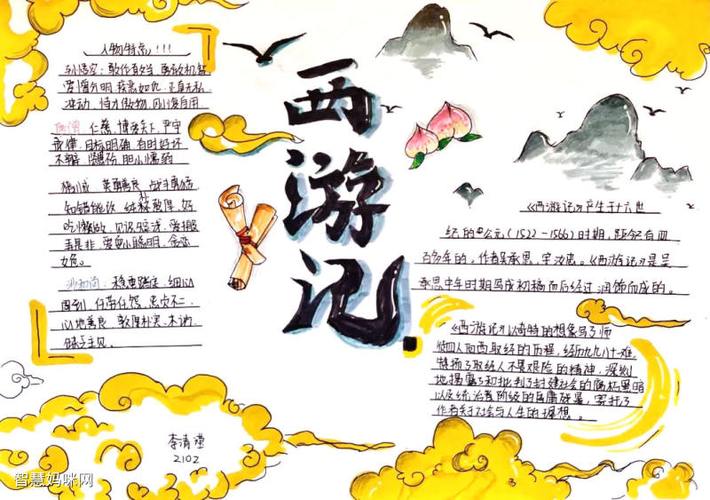 人物特点!!!
孙悟空:敢作敢当 勇敢机智
爱憎分明 疾恶如仇 正直无私
冲动 恃力傲物 刚愎自用
唐僧 仁慈 博爱天下 严守
戒律 目标明确 有时好坏
不辨 胆小懦弱
猪八戒 英勇善良 战斗勇敢
知错能改 纯朴敦厚 好
吃懒做 见识短浅 爱搬
弄是非 爱耍小聪明 贪恋
女色。
沙和尚 稳重踏实 细心
周到 任劳任怨 忠贞不二
心地善良 敦厚朴实 木讷
缺乏主见
西游记
《西游记》产生于十六世
纪的 (1522-1566)时期,距今有四
百多年的,作者吴承恩,字汝忠。《西游记》是吴
承恩中年时期写成初稿而后经过 润饰而成的。
《西游记》以奇特的想象写了师
徒四人向西取经的历程,经历九九八十一难,
赞扬了取经人不畏艰险的精神,深刻
地揭露了和批判了封建社会的腐朽黑暗
以及统治者阶级的昏庸残暴,寄托了
作者关于社会与人生的理想。
李清
2102
智慧妈咪网